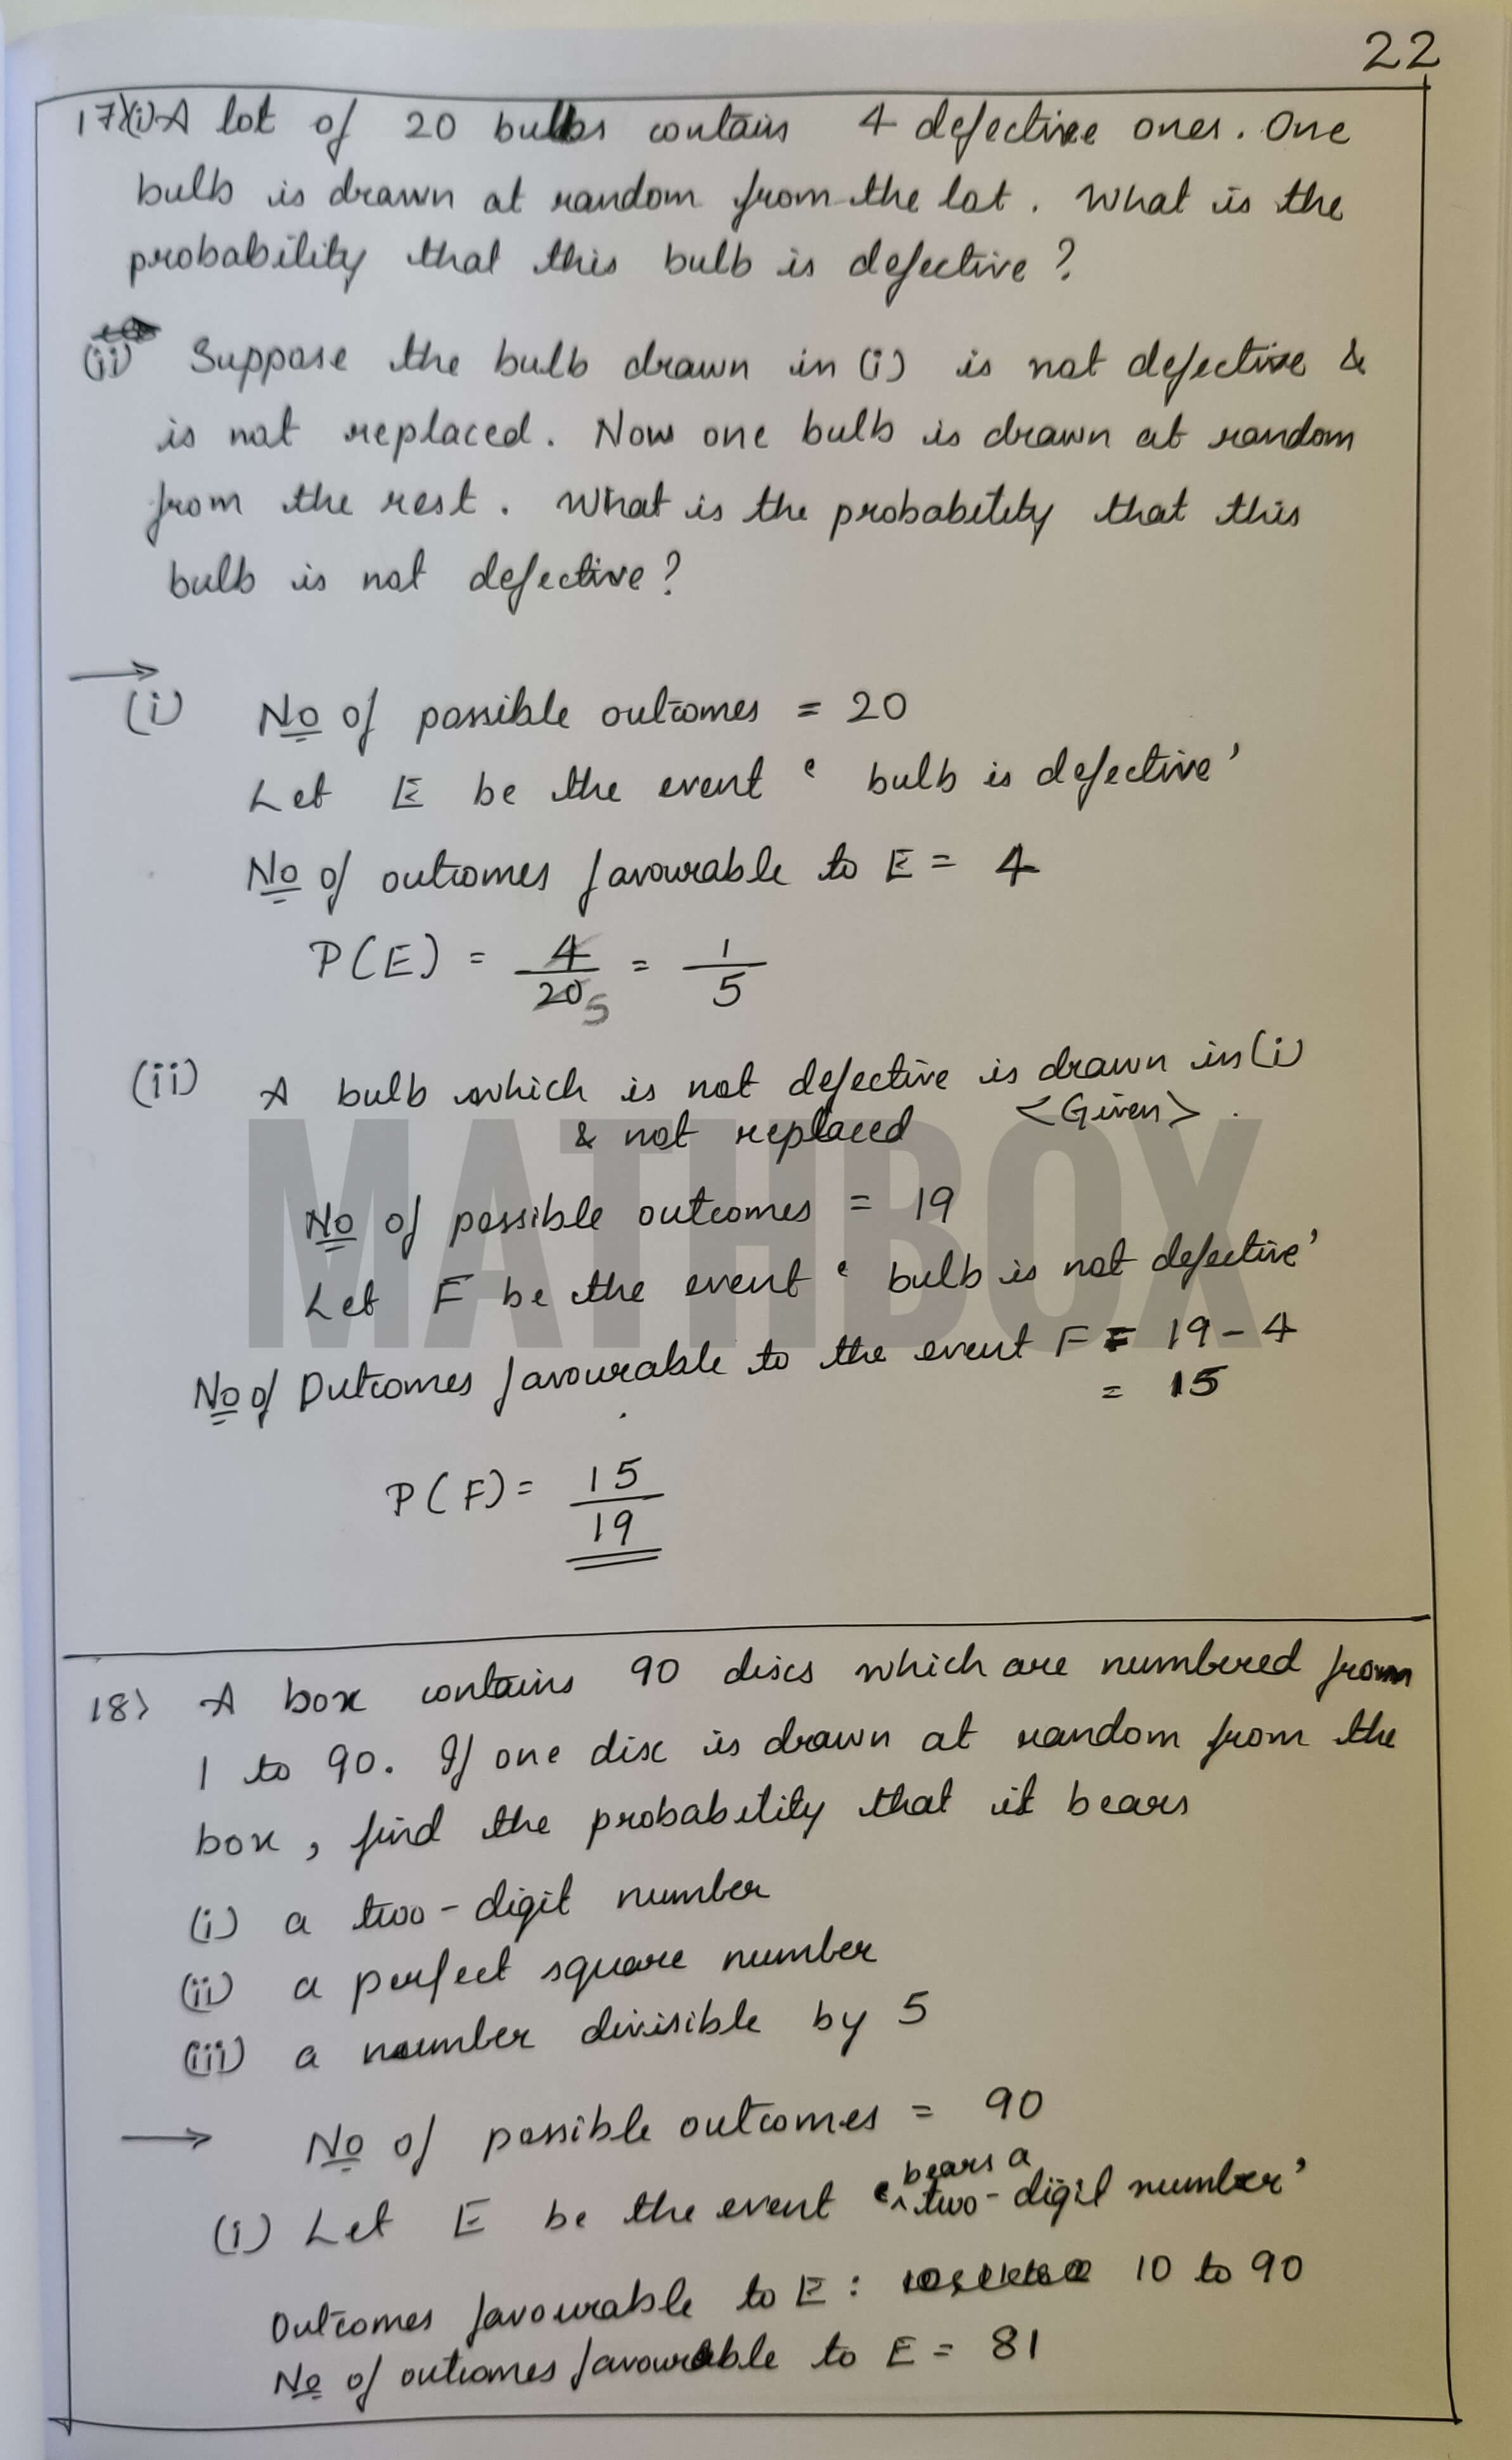 22
17)(i) A lot of 20 bulbs contain 4 defective ones. One
bulb is drawn at random from the lot. What is the
probability that this bulb is defective?
(ii) Suppose the bulb drawn in (i) is not defective &
is not replaced. Now one bulb is drawn at random
from the rest. What is the probability that this
bulb is not defective?
→
(i) No of possible outcomes = 20
Let E be the event ‘ bulb is defective’
No of outcomes favourable to E = 4
P(E) = 4/20 5 = 1/5
(ii) A bulb which is not defective is drawn in (i)
& not replaced <Given>.
No of possible outcomes = 19
Let F be the event ‘ bulb is not defective’
No of Outcomes favourable to the event F = 19 - 4
= 15
P(F) = 15/19
MATHBOX
18) A box contains 90 discs which are numbered from
1 to 90. If one disc is drawn at random from the
box, find the probability that it bears
(i) a two-digit number
(ii) a perfect square number
(iii) a number divisible by 5
→ No of possible outcomes = 90
(i) Let E be the event ‘ bears a two-digit number’
Outcomes favourable to E : 10 to 90
No of outcomes favourable to E = 81